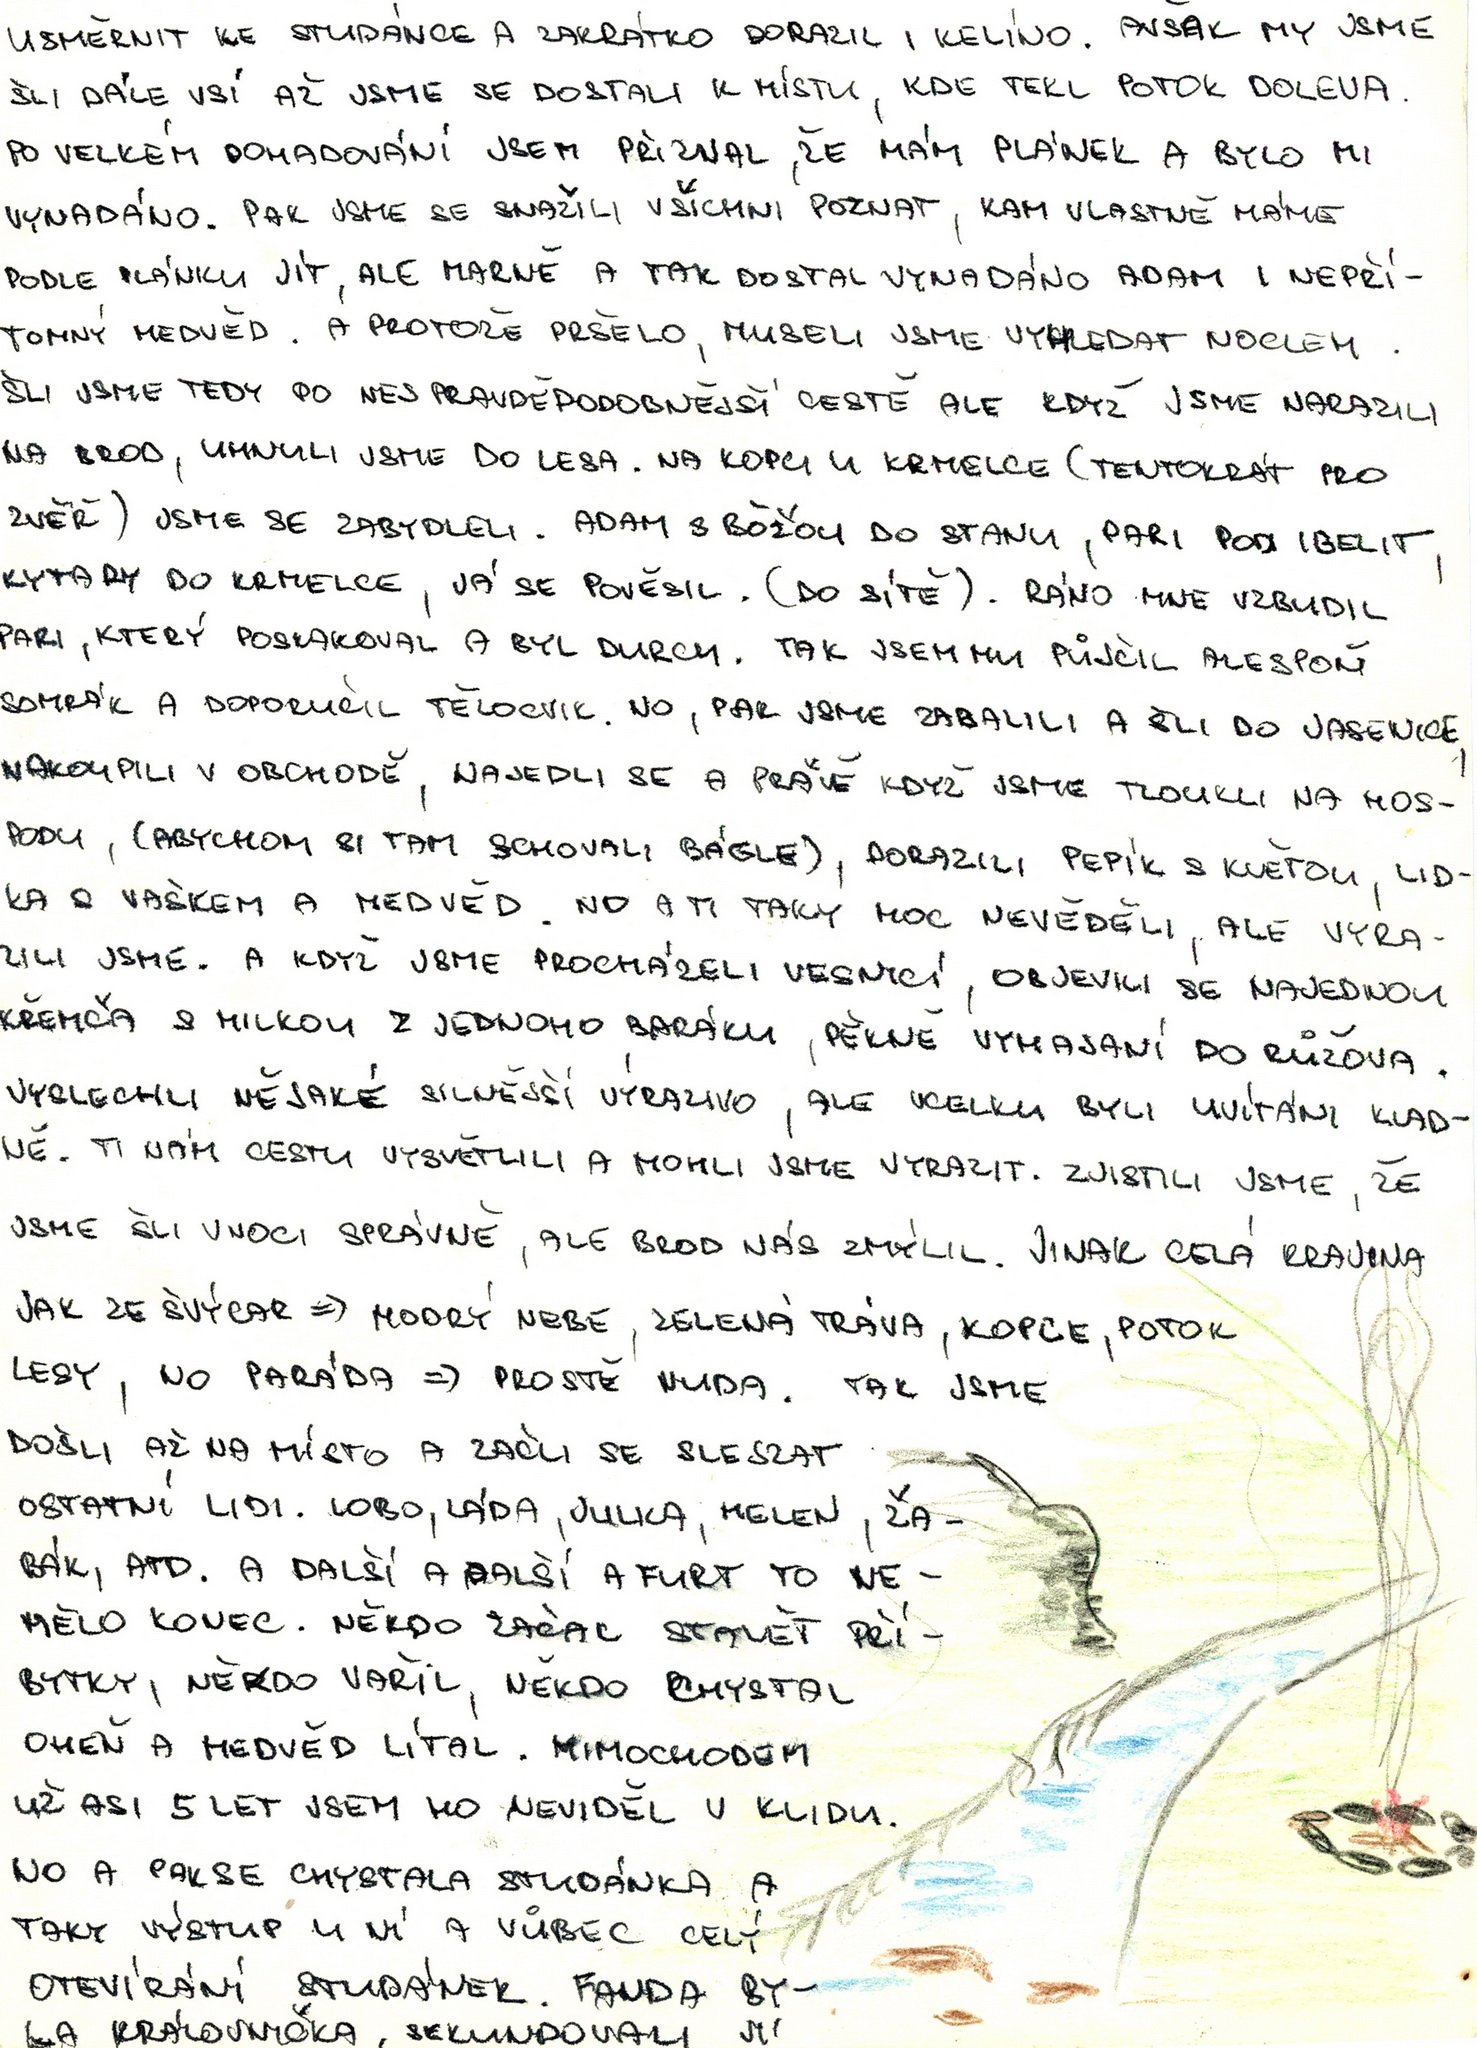 USMĚRNIT KE STUDÁNCE A ZAKRÁTKO DORAZIL I KELÍNO. AVŠAK MY JSME
ŠLI DÁLE VSÍ AŽ JSME SE DOSTALI K MÍSTU, KDE TEKL POTOK DOLEVA.
PO VELKÉM DOHADOVÁNÍ JSEM PŘIZNAL, ŽE MÁM PLÁNEK A BYLO MI
VYNADÁNO. PAK JSME SE SNAŽILI VŠICHNI POZNAT, KAM VLASTNĚ MÁME
PODLE PLÁNKU JÍT, ALE MARNĚ A TAK DOSTAL VYNADÁNO ADAM I NEPŘÍ-
TOMNÝ MEDVĚD. A PROTOŽE PRŠELO, MUSELI JSME VYHLEDAT NOCLEH.
ŠLI JSME TEDY PO NEJPRAVDĚPODOBNĚJŠÍ CESTĚ ALE KDYŽ JSME NARAZILI
NA BROD, UHNULI JSME DO LESA. NA KOPCI U KRMELCE (TENTOKRÁT PRO
ZVĚŘ) JSME SE ZABYDLELI. ADAM S BÓŽOU DO STANU, PARI POD IBELIT,
KYTARY DO KRMELCE, JÁ SE POVĚSIL. (DO SÍTĚ). RÁNO MNE VZBUDIL
PARI, KTERÝ POSKAKOVAL A BYL DURCH. TAK JSEM MU PŮJČIL ALESPOŇ
SOMRÁK A DOPORUČIL TĚLOCVIK. NO, PAK JSME ZABALILI A ŠLI DO JASENICE,
NAKOUPILI V OBCHODĚ, NAJEDLI SE A PRÁVĚ KDYŽ JSME TLOUKLI NA HOS-
PODU, (ABYCHOM SI TAM SCHOVALI BÁGLE), DORAZILI PEPÍK S KVĚTOU, LID-
KA S VAŠKEM A MEDVĚD. NO A TI TAKY MOC NEVĚDĚLI, ALE VYRA-
ZILI JSME. A KDYŽ JSME PROCHÁZELI VESNICÍ, OBJEVILI SE NAJEDNOU
KŘEMČA S MILKOU Z JEDNOHO BARÁKU, PĚKNĚ VYHAJANÍ DO RŮŽOVA.
VYSLECHLI NĚJAKÉ SILNĚJŠÍ VÝRAZIVO, ALE VCELKU BYLI UVÍTÁNI KLAD-
NĚ. TI NÁM CESTU VYSVĚTLILI A MOHLI JSME VYRAZIT. ZJISTILI JSME, ŽE
JSME ŠLI V NOCI SPRÁVNĚ, ALE BROD NÁS ZMÝLIL. JINAK CELÁ KRAJINA
JAK ZE ŠVÝCAR => MODRÝ NEBE, ZELENÁ TRÁVA, KOPCE, POTOK
LESY, NO PARÁDA => PROSTĚ NUDA. TAK JSME
DOŠLI AŽ NA MÍSTO A ZAČLI SE SLESZAT
OSTATNÍ LIDI. LOBO, LÁDA, JULKA, HELEN, ŽA-
BÁK, ATD. A DALŠÍ A DALŠÍ A FURT TO NE-
MĚLO KONEC. NĚKDO ZAČAL STAVĚT PŘÍ-
BYTKY, NĚKDO VAŘIL, NĚKDO CHYSTAL
OHEŇ A MEDVĚD LÍTAL. MIMOCHODEM
UŽ ASI 5 LET JSEM HO NEVIDĚL V KLIDU.
NO A PAK SE CHYSTALA STUDÁNKA A
TAKY VÝSTUP U NÍ A VŮBEC CELÝ
OTEVÍRÁNÍ STUDÁNEK. FANDA BY-
LA KRÁLOVNIČKA, SEKUNDOVALI JÍ